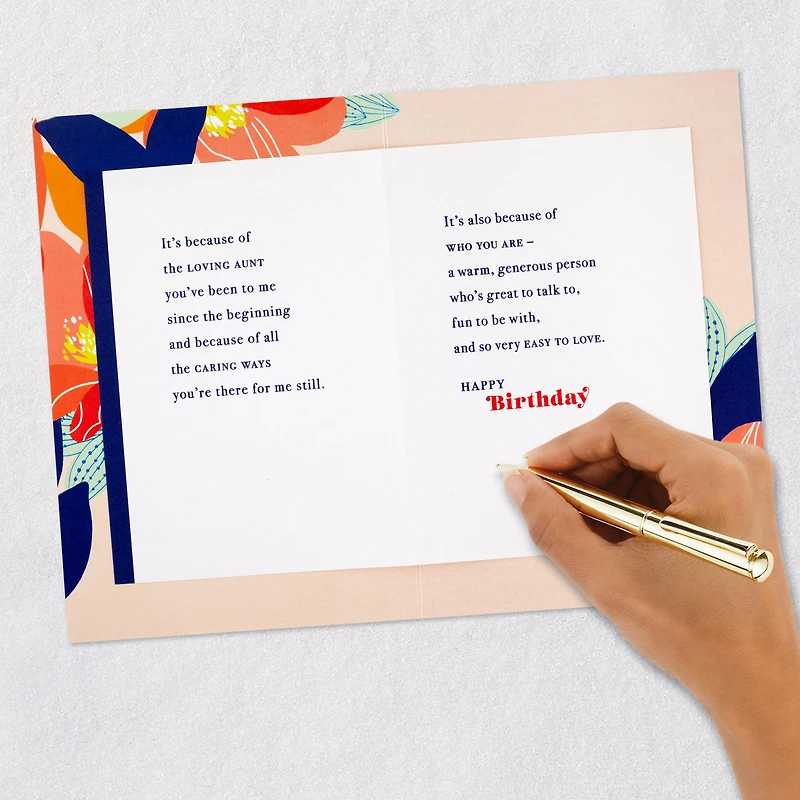 It's because of
the LOVING AUNT
you've been to me
since the beginning
and because of all
the CARING WAYS
you're there for me still.
It's also because of
WHO YOU ARE –
a warm, generous person
who's great to talk to,
fun to be with,
and so very EASY TO LOVE.
HAPPY
Birthday